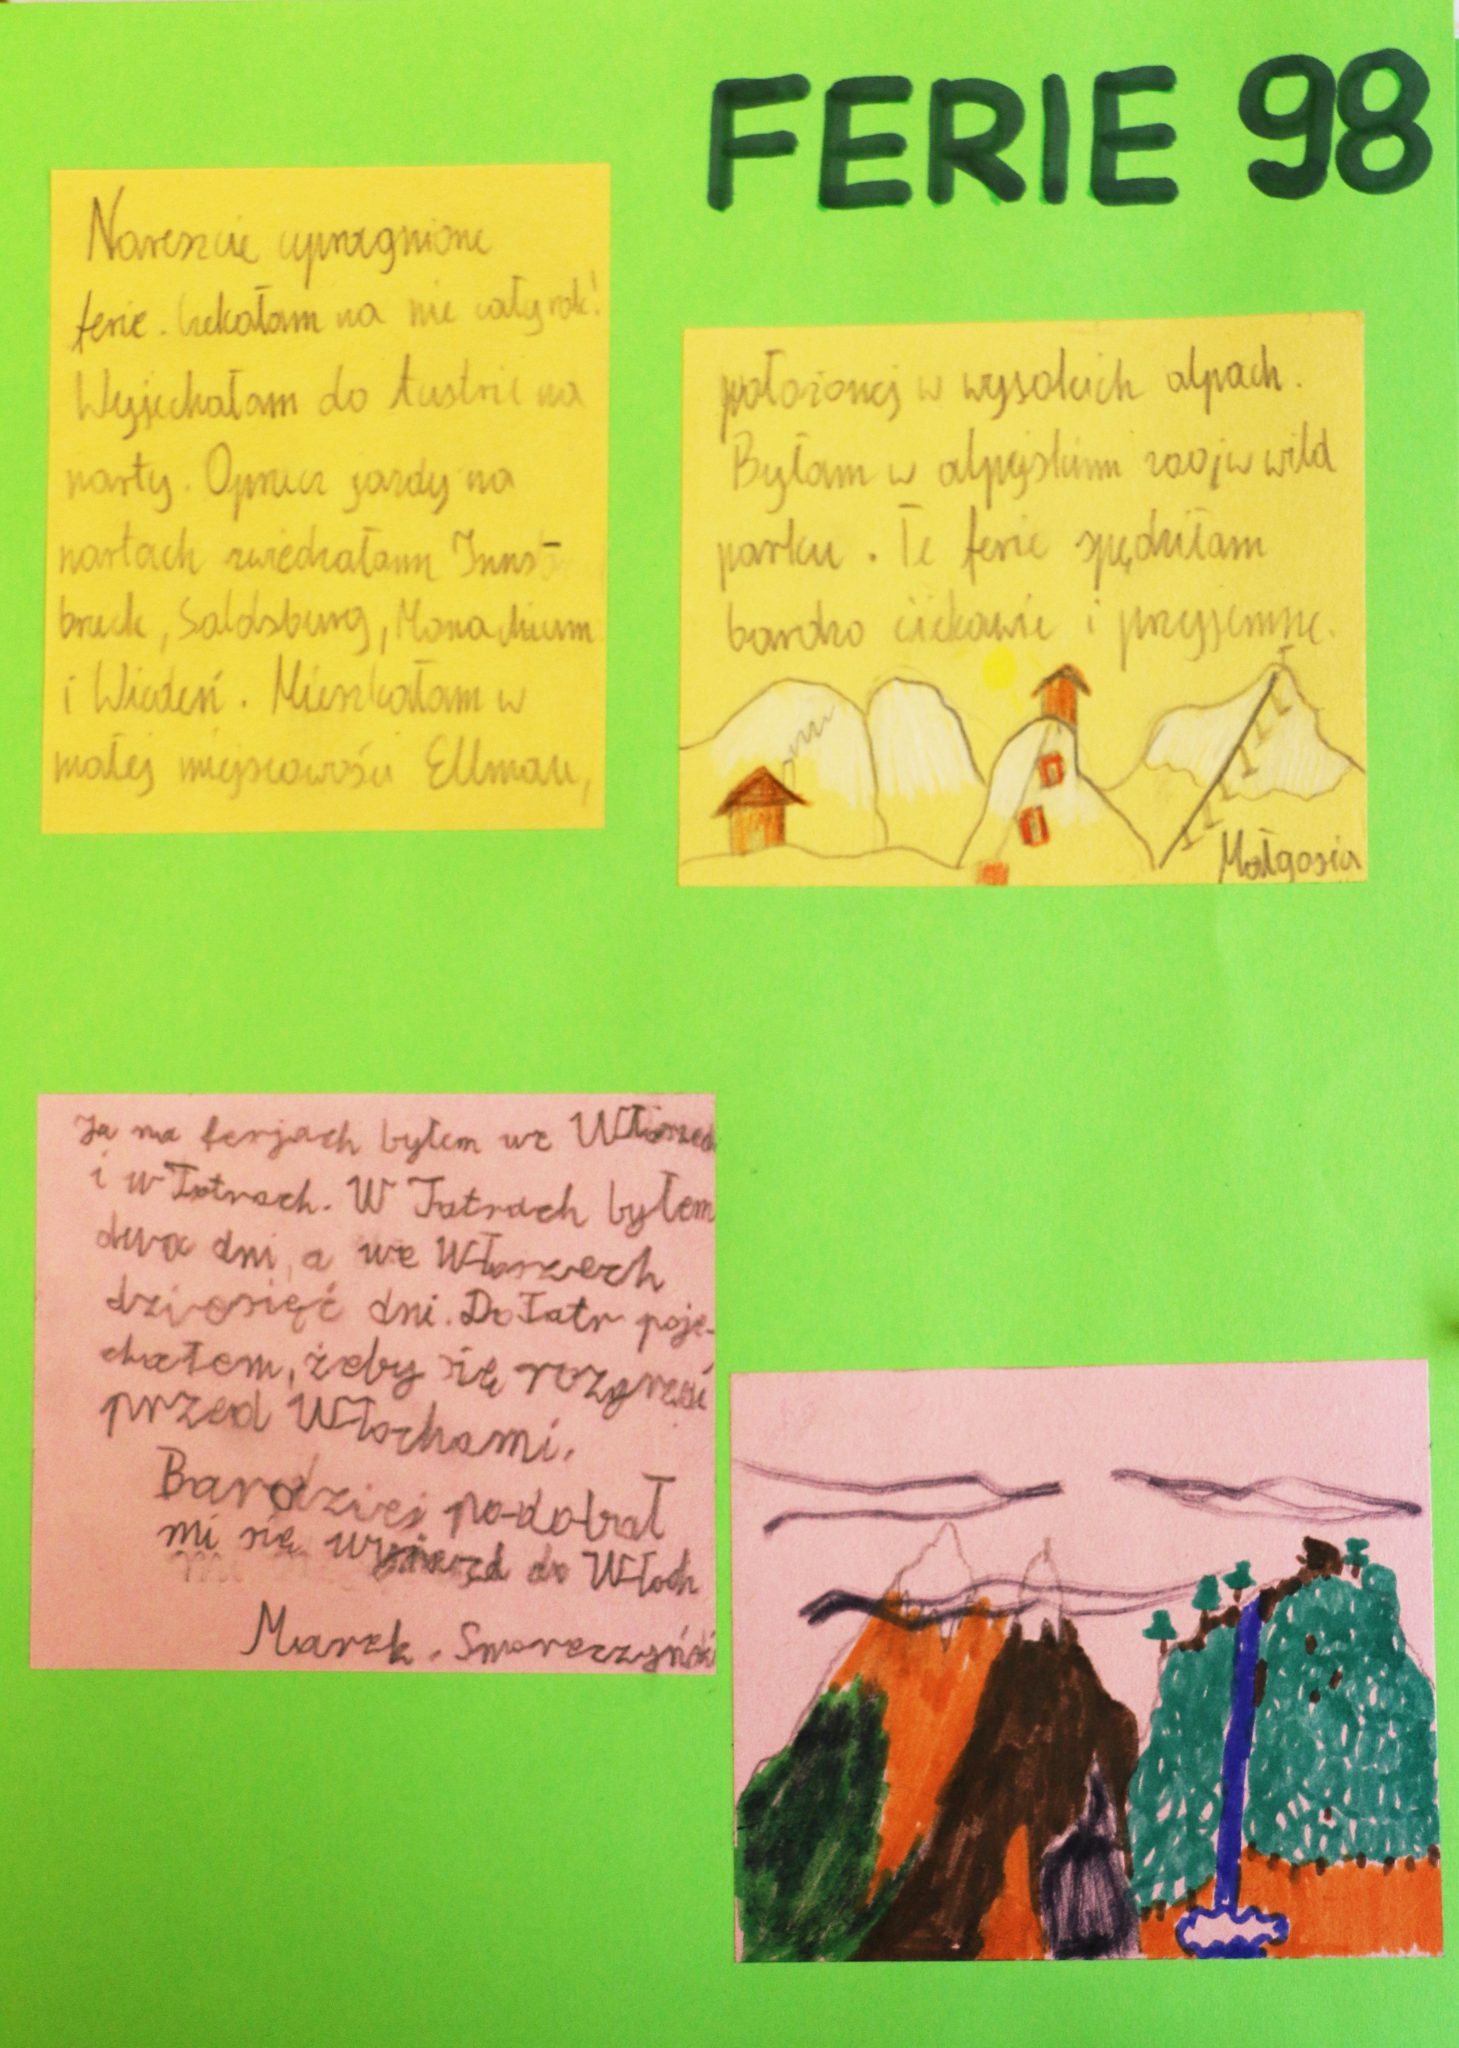 FERIE 98
Nareszcie upragnione
ferie. Czekałam na nie cały rok!
Wyjechałam do Austrii na
narty. Oprócz jazdy na
nartach zwiedzałam Inns
bruck, Saldsburg, Monachium
i Wiedeń. Mieszkałam w
małej miejscowości Ellmau,
położonej w wysokich alpach.
Byłam w alpejskim zoo w wild
parku. Te ferie spędziłam
bardzo ciekawie i przyjemnie.
Małgosia
Ja na ferjach byłem we Włoszech
i w Tatrach. W Tatrach byłem
dwa dni, a we Włoszech
dziesięć dni. Do Tatr poje-
chałem, żeby się rozgrzać
przed Włochami.
Bardziej podobał
mi się wyjazd do Włoch
Marek